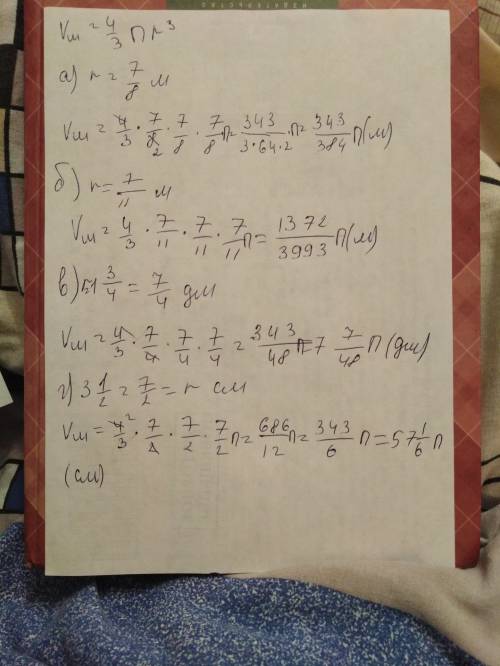 Vш = 4/3 П r³
а) r = 7/8 м
Vш = 4/3 · 7/8 2 · 7/8 · 7/8 П = 343/3·64·2 · П = 343/384 П (м)
б) r = 7/11 м
Vш = 4/3 · 7/11 · 7/11 · 7/11 П = 1372/3993 П (м)
в) 1 3/4 = 7/4 дм
Vш = 4/3 · 7/4 · 7/4 · 7/4 = 343/48 П = 7 7/48 П (дм)
г) 3 1/2 = 7/2 = r см
Vш = 4 2/3 · 7/2 · 7/2 · 7/2 П = 686/12 П = 343/6 П = 57 1/6 П
(см)